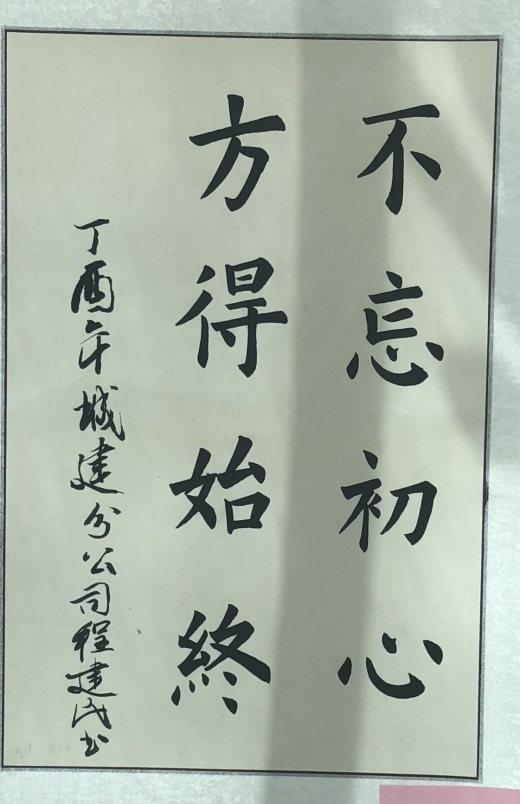 不忘初心
方得始終
丁酉年城建分公司程建民书